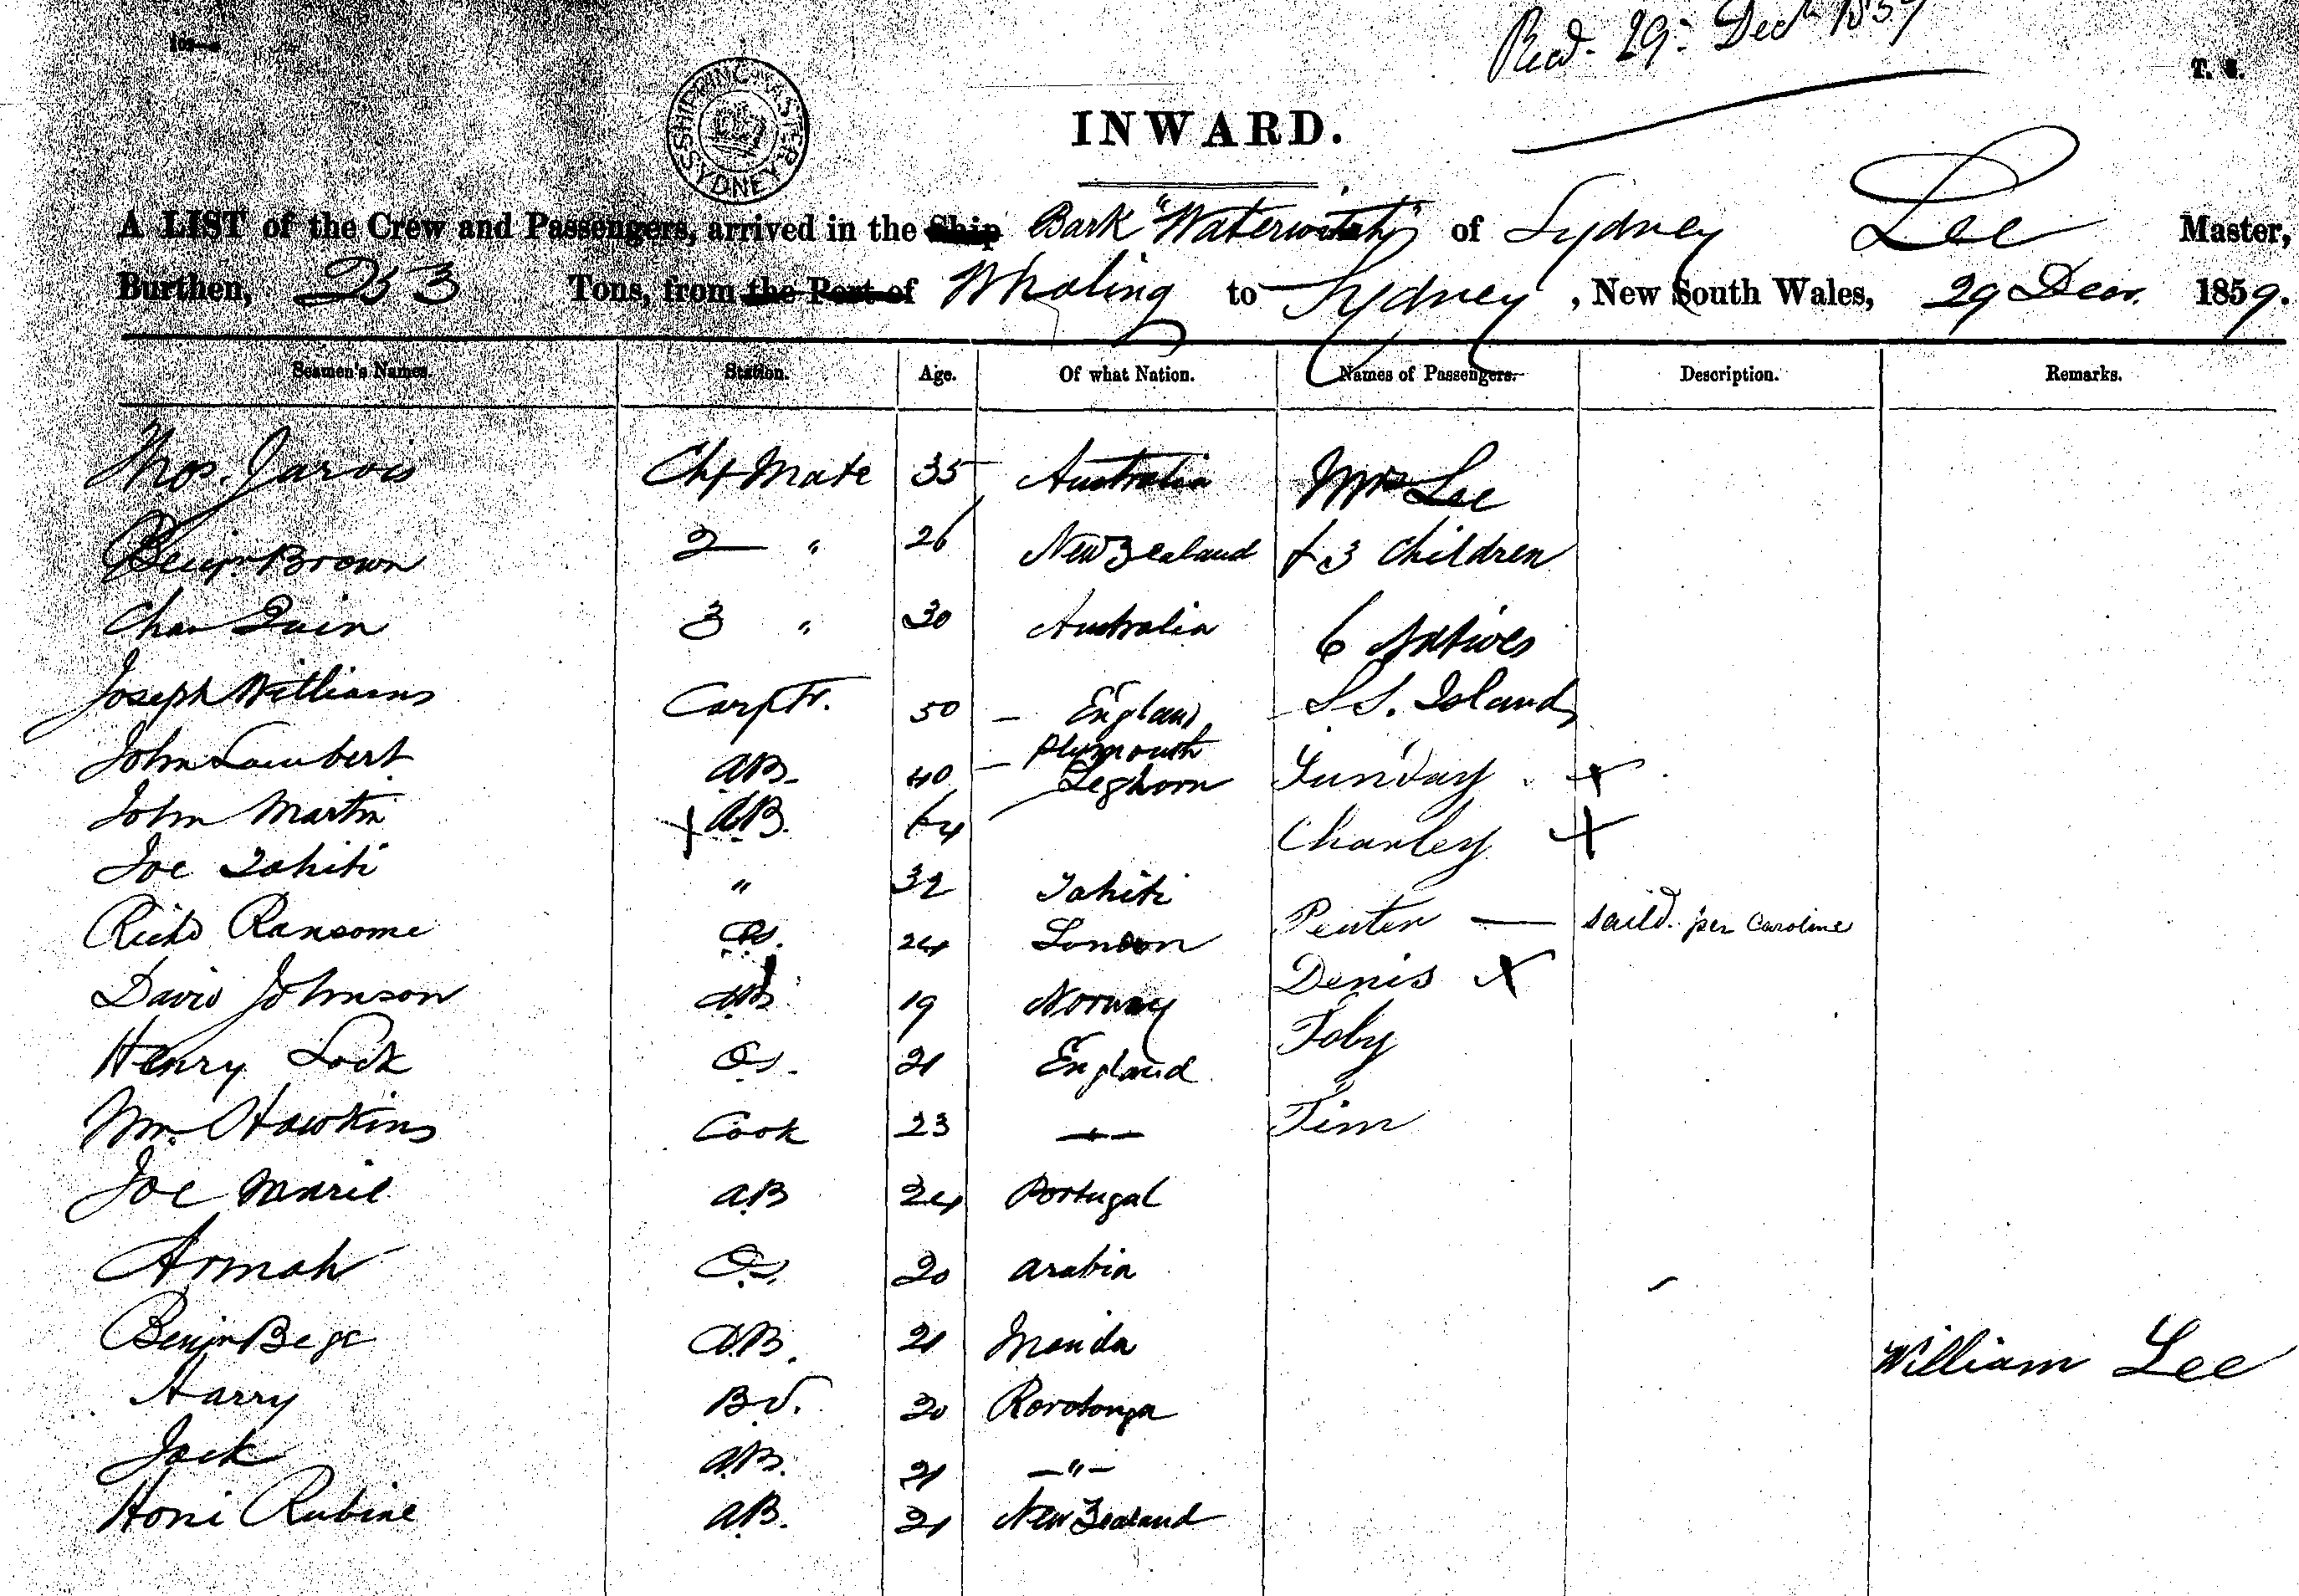 Recd. 29: Decr 1859
SHIPPING MASTER SYDNEY
T. S.
INWARD.
A LIST of the Crew and Passengers, arrived in the Ship Bark "Waterwitch" of Sydney Lee Master,
Burthen, 253 Tons, from the Port of Whaling to Sydney, New South Wales, 29 Decr. 1859.
Seamen's Names. Station. Age. Of what Nation. Names of Passengers. Description. Remarks.
Thos. Jarvis Chf Mate 35 Australia Mrs Lee
Benjn. Brown 2 " 26 New Zealand + 3 Children
Chas Quin 3 " 30 Australia 6 Natives
Joseph Williams Carptr. 50 – England S.S. Islands
John Lambert A.B. 40 – Plymouth Sunday X
John Martin X A.B. 64 Leghorn Charley X
Joe Tahiti " 32 Tahiti
Richd Ransome O.S. 24 London Peuter — saild. per Caroline
David Johnson A.B. 19 Norway Denis X
Henry Lock O.S. 21 England Toby
Wm. Hawkins Cook 23 — " — Tim
Joe Marie A.B 24 Portugal
Aomah O.S. 20 Arabia
Benjn A.B. 21
William Lee
Harry 20 Rorotonga
Jack A.B. 21 – " –
Honi Rubine A.B. 21 New Zealand